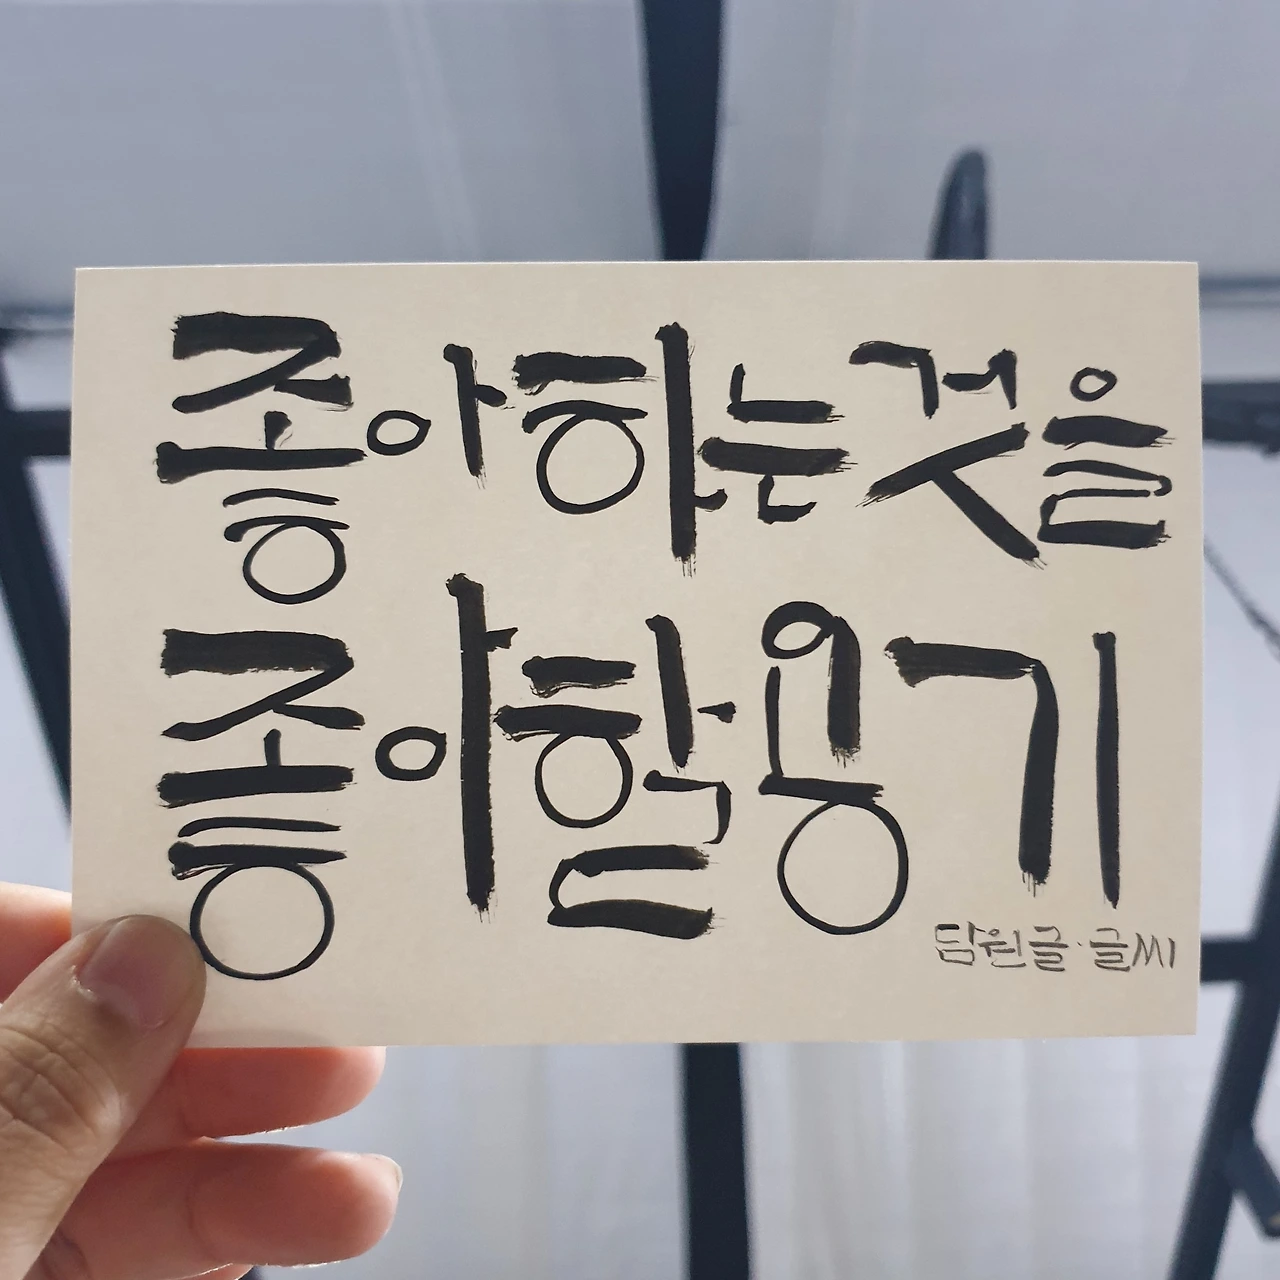 좋아하는것을
좋아할용기
담원글·글씨